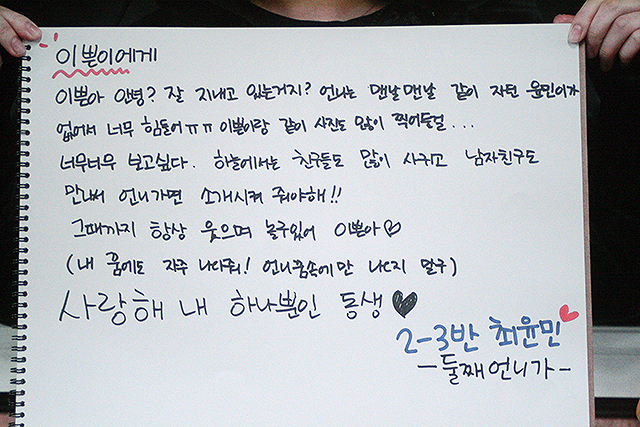 이쁜이에게
이쁜아 안녕? 잘 지내고 있는거지? 언니는 맨날맨날 같이 자던 윤민이가
없어서 너무 힘들어ㅠㅠ 이쁜이랑 같이 사진도 많이 찍어둘걸...
너무너무 보고싶다. 하늘에서는 친구들도 많이 사귀고 남자친구도
만나서 언니가면 소개시켜 줘야해!!
그때까지 항상 웃으며 놀구있어 이쁜아♡
(내 꿈에도 자주 나와줘! 언니꿈속에만 나오지 말구)
사랑해 내 하나뿐인 동생♥
2-3반 최윤민
-둘째언니가-